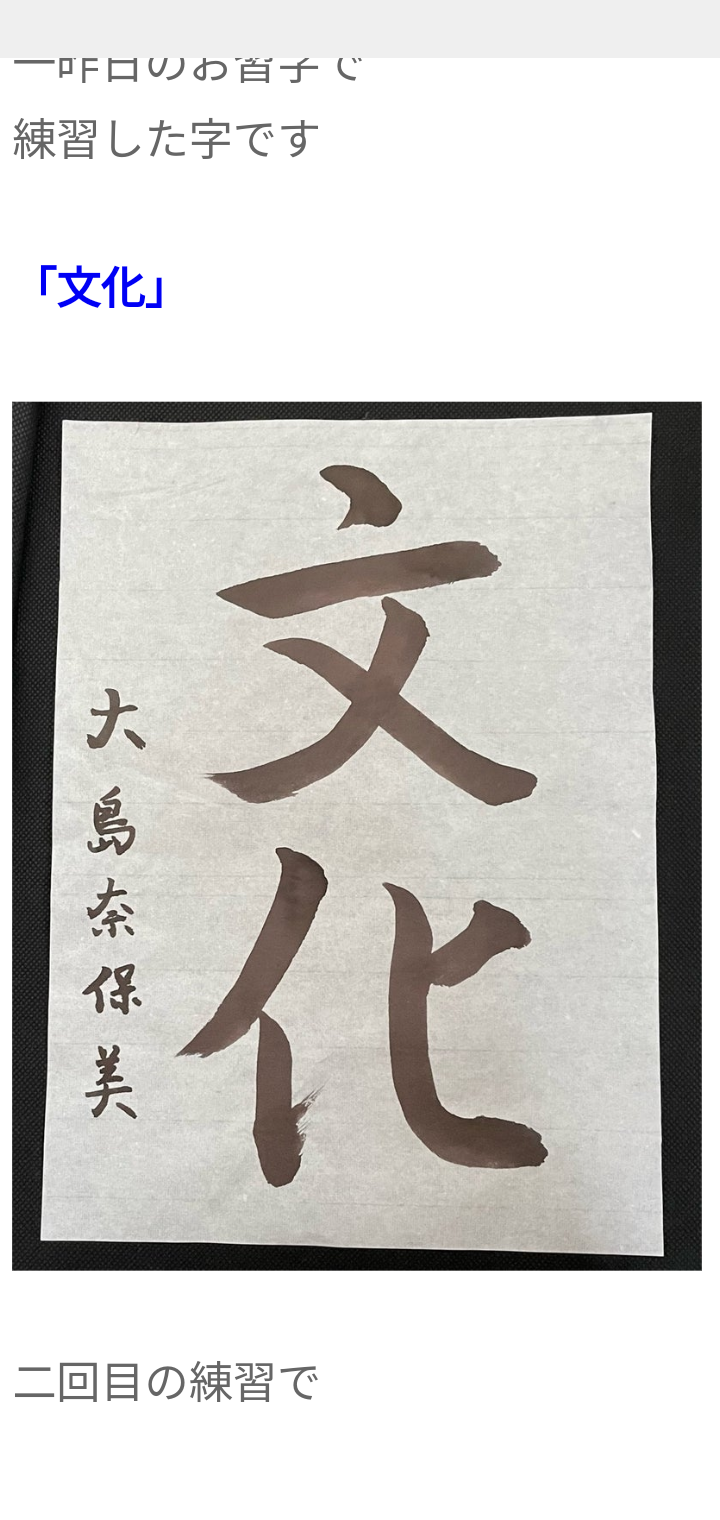 一昨日のお習字で
練習した字です
「文化」
文化
大島奈保美
二回目の練習で